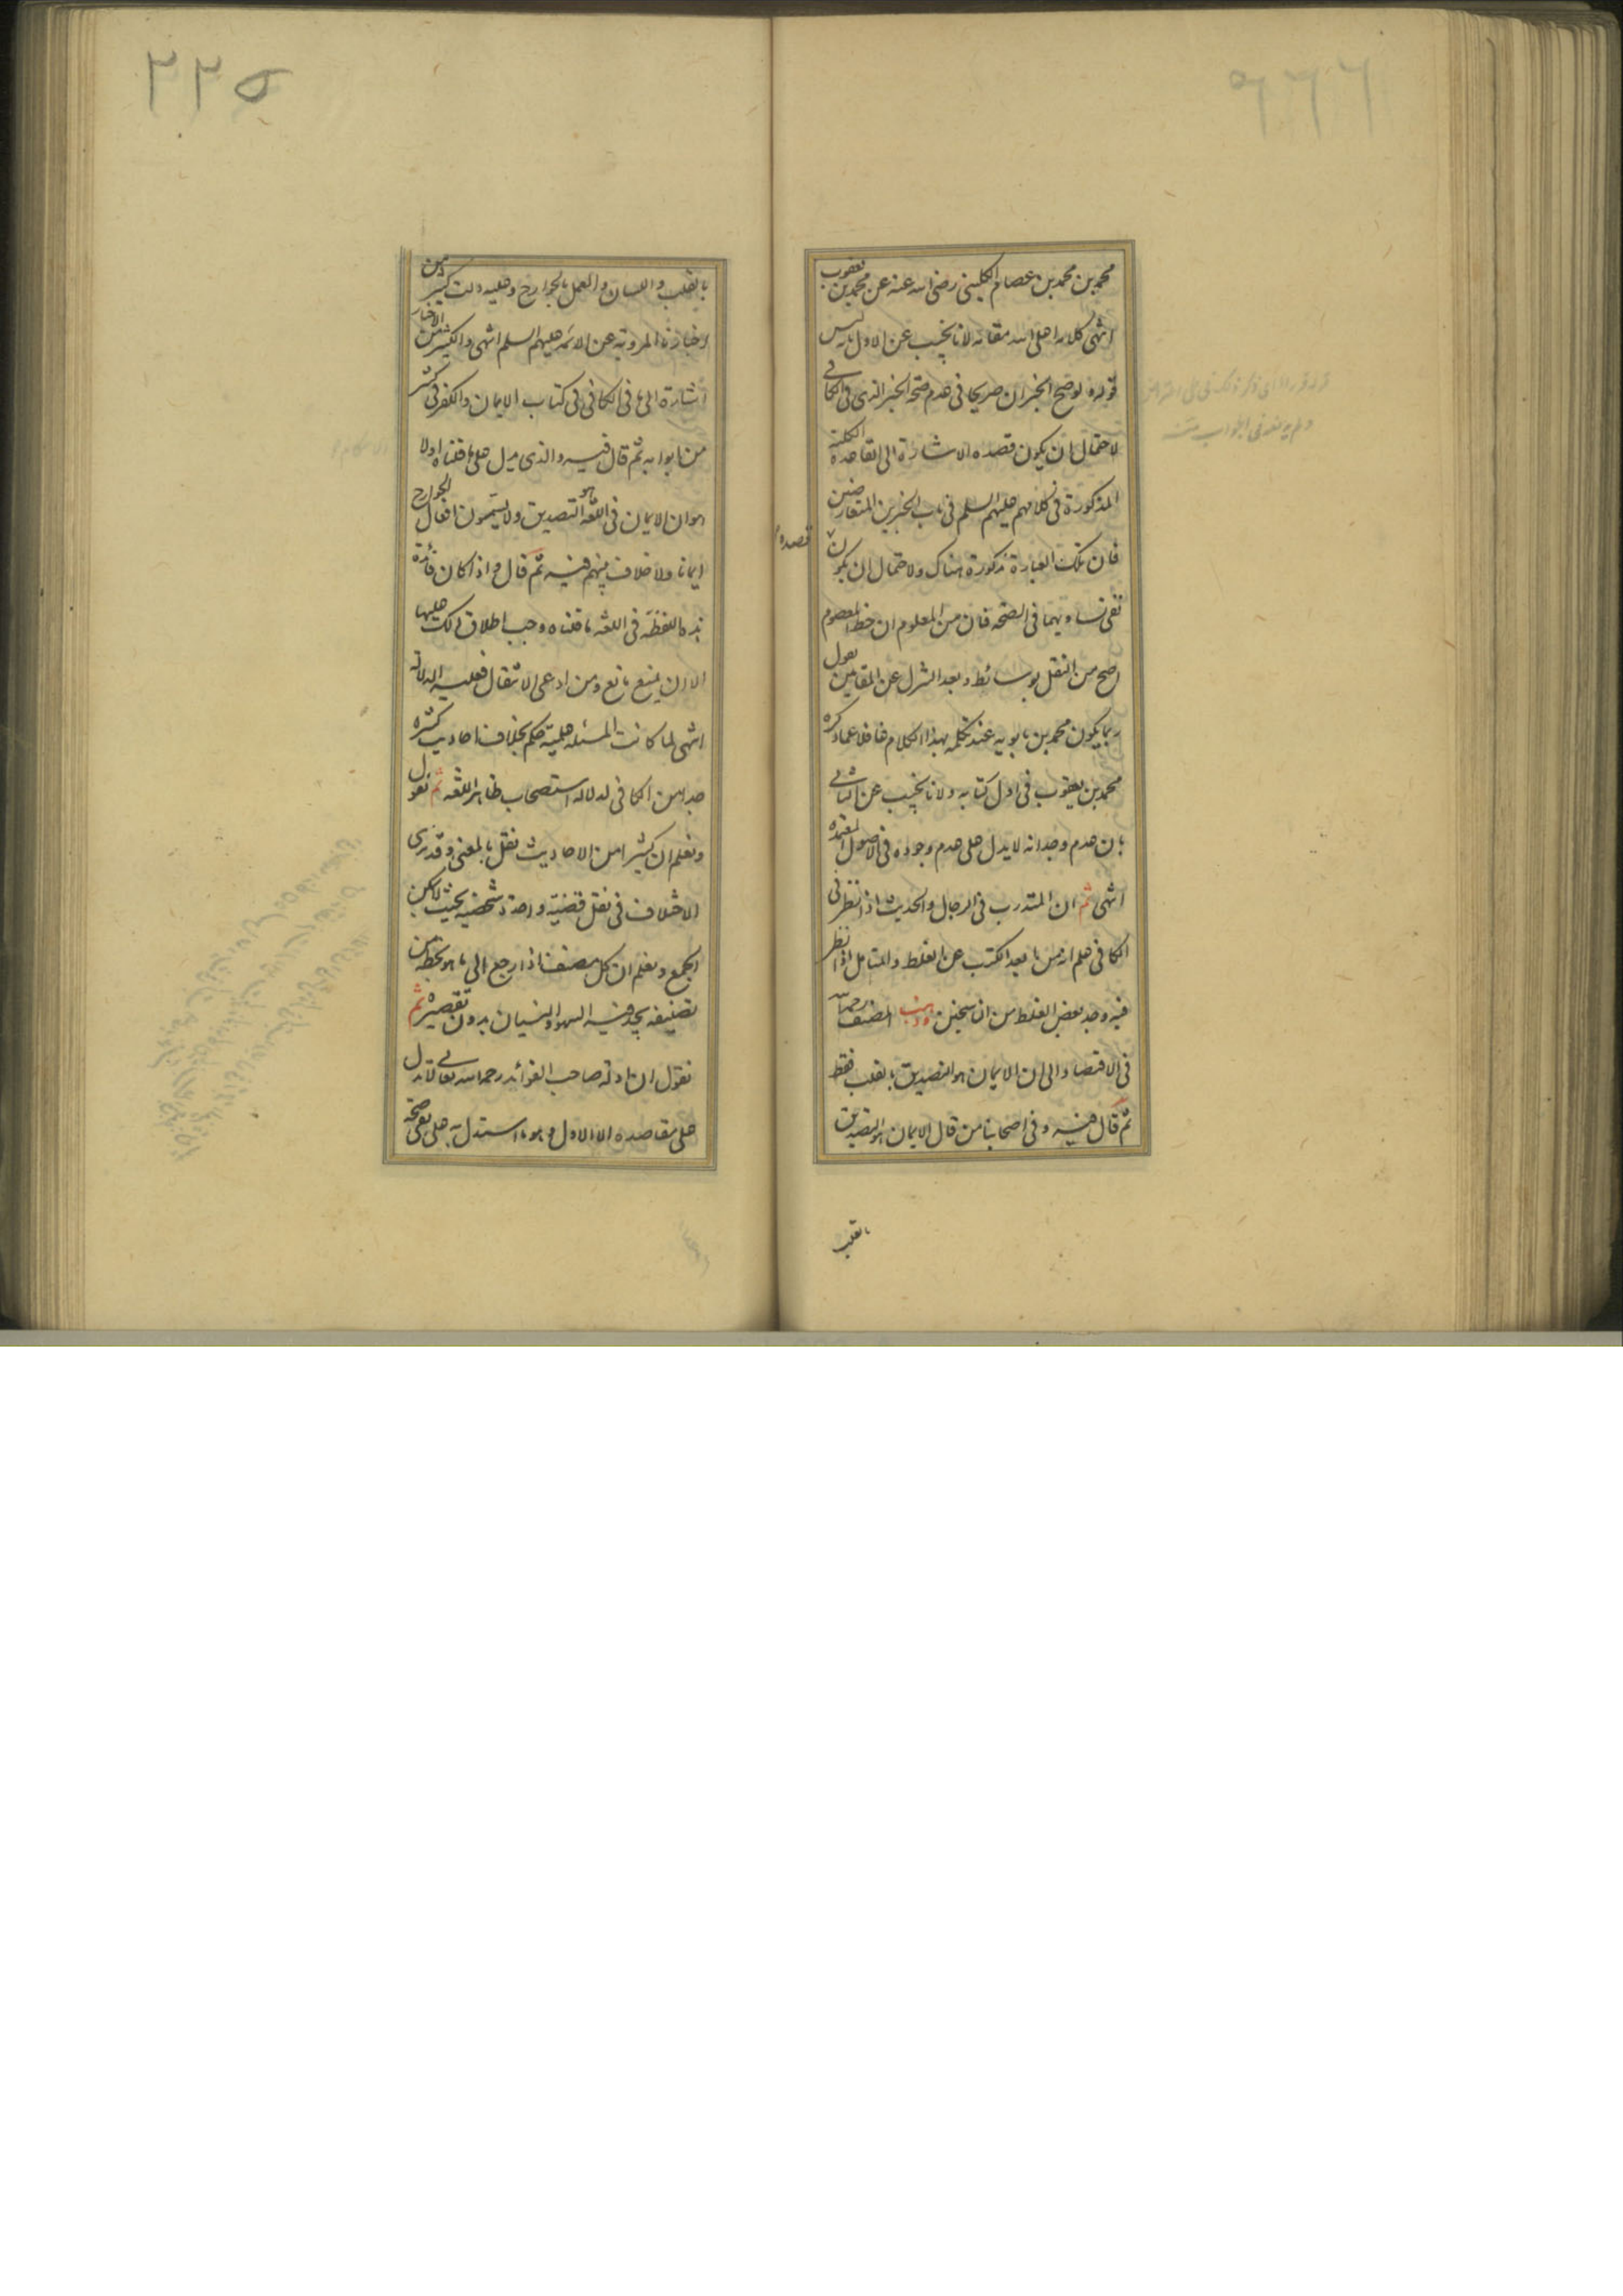 محمد بن محمد بن عصام الكليني رضى الله عنه عن محمد بن يعقوب
انتهى كلامه اعلى الله مقامه لانا نجيب عن الاول بانه ليس
قوله لو صح الخبران صريحا فى عدم صحة الخبر الذى فى الكافى
لاحتمال ان يكون قصده الاشارة الى القاعدة الكلية
المذكورة فى كلامهم عليهم السلم فى باب الخبرين المتعارضين
فان تلك العبارة مذكورة هناك ولاحتمال ان يكون
قصده
نفى تساويهما فى الصحة فان من المعلوم ان خط المعصوم
اصح من النقل بوسائط وبعد التنزل عن المقامين نقول
ربما يكون محمد بن بابويه عند تكلمه بهذا الكلام غافلا عما ذكره
محمد بن يعقوب فى اول كتابه ولانا نجيب عن الثانى
بان عدم وجدانه لا يدل على عدم وجوده فى الاصول المعتمده
انتهى ثم ان المتدرب فى الرجال والحديث اذا نظر فى
الكافى علم انه من ابعد الكتب عن الغلط والمتامل اذا نظر
فيه وجد بعض الغلط من الناسخين وذهب المصنف رحمه الله
فى الاقتصاد الى ان الايمان هو التصديق بالقلب فقط
ثم قال فيه وفى اصحابنا من قال الايمان هو التصديق
بالقلب
٢٢٥
بالقلب واللسان والعمل بالجوارح وعليه دلت كثير من
اخبارنا المروية عن الائمه عليهم السلم انتهى والكثير من الاخبار
اشارة الى ما فى الكافى فى كتاب الايمان والكفر فى كثير
من ابوابه ثم قال فيه والذى يدل على ما قلناه اولا
هو ان الايمان فى اللغة هو التصديق ولا يسمون افعال الجوارح
ايمانا ولا خلاف بينهم فيه ثم قال واذا كان فائدة
هذه اللفظة فى اللغة ما قلناه وجب اطلاق ذلك عليها
الا ان يمنع مانع ومن ادعى الانتقال فعليه الدلالة
انتهى لما كانت المسئله علمية حكم بخلاف احاديث كثيرة
جدا من الكافى لدلالة استصحاب ظاهر اللغه ثم نقول
ونعلم ان كثيرا من الاحاديث نقل بالمعنى وقد نرى
الاختلاف فى نقل قضية واحدة شخصية بحيث لا يمكن
الجمع ونعلم ان كل مصنف اذا رجع الى ما هو بخطه من
تصنيفه يجد فيه السهو والنسيان بدون تقصير ثم
نقول ان ادلة صاحب الفوائد رحمه الله تعالى لا تدل
على مقاصده الا الاول وهو ما استدل به على نفى صحة